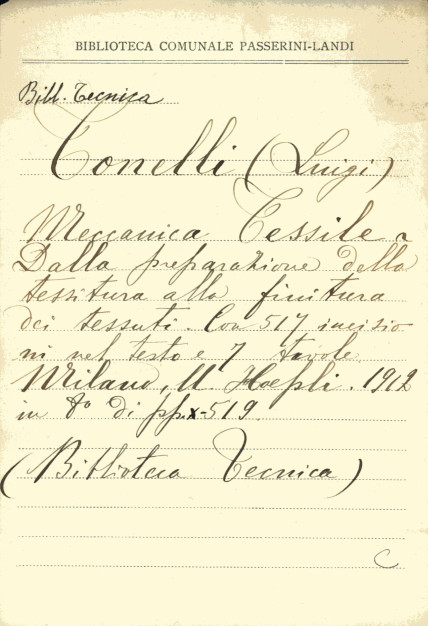 BIBLIOTECA COMUNALE PASSERINI-LANDI
Bibl. Tecnica
Tonelli (Luigi)
Meccanica Tessile -
Dalla preparazione della
tessitura alla finitura
dei tessuti. Con 517 incisio
ni nel testo e 7 tavole
Milano, U. Hoepli. 1912
in 8º di pp. X-519.
(Biblioteca Tecnica)
C